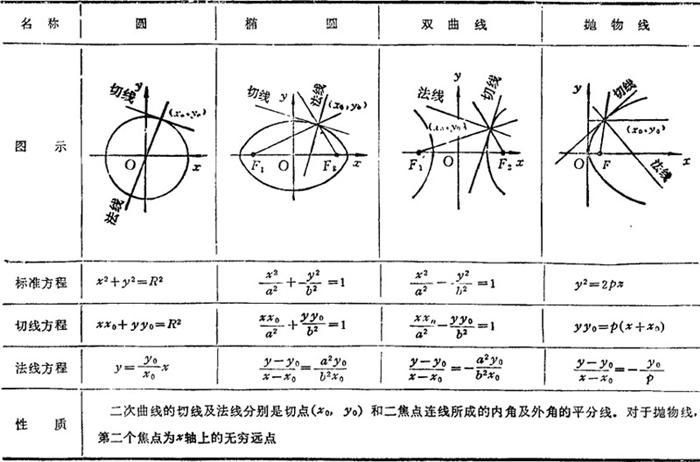 名 称 圆 椭 圆 双 曲 线 抛 物 线
图 示
y 切线 (x₀,y₀) O x 法线
y 切线 法线 (x₀,y₀) F₁ O F₂ x
法线 y 切线 (x₀,y₀) F₁ O F₂ x
y 切线 (x₀,y₀) O F x 法线
标准方程 x²+y²=R² x²/a²+y²/b²=1 x²/a²-y²/b²=1 y²=2px
切线方程 xx₀+yy₀=R² xx₀/a²+yy₀/b²=1 xx₀/a²-yy₀/b²=1 yy₀=p(x+x₀)
法线方程 y=y₀/x₀ x (y-y₀)/(x-x₀)=a²y₀/b²x₀ (y-y₀)/(x-x₀)=-a²y₀/b²x₀ (y-y₀)/(x-x₀)=-y₀/p
性 质 二次曲线的切线及法线分别是切点(x₀, y₀)和二焦点连线所成的内角及外角的平分线。对于抛物线,
第二个焦点为x轴上的无穷远点